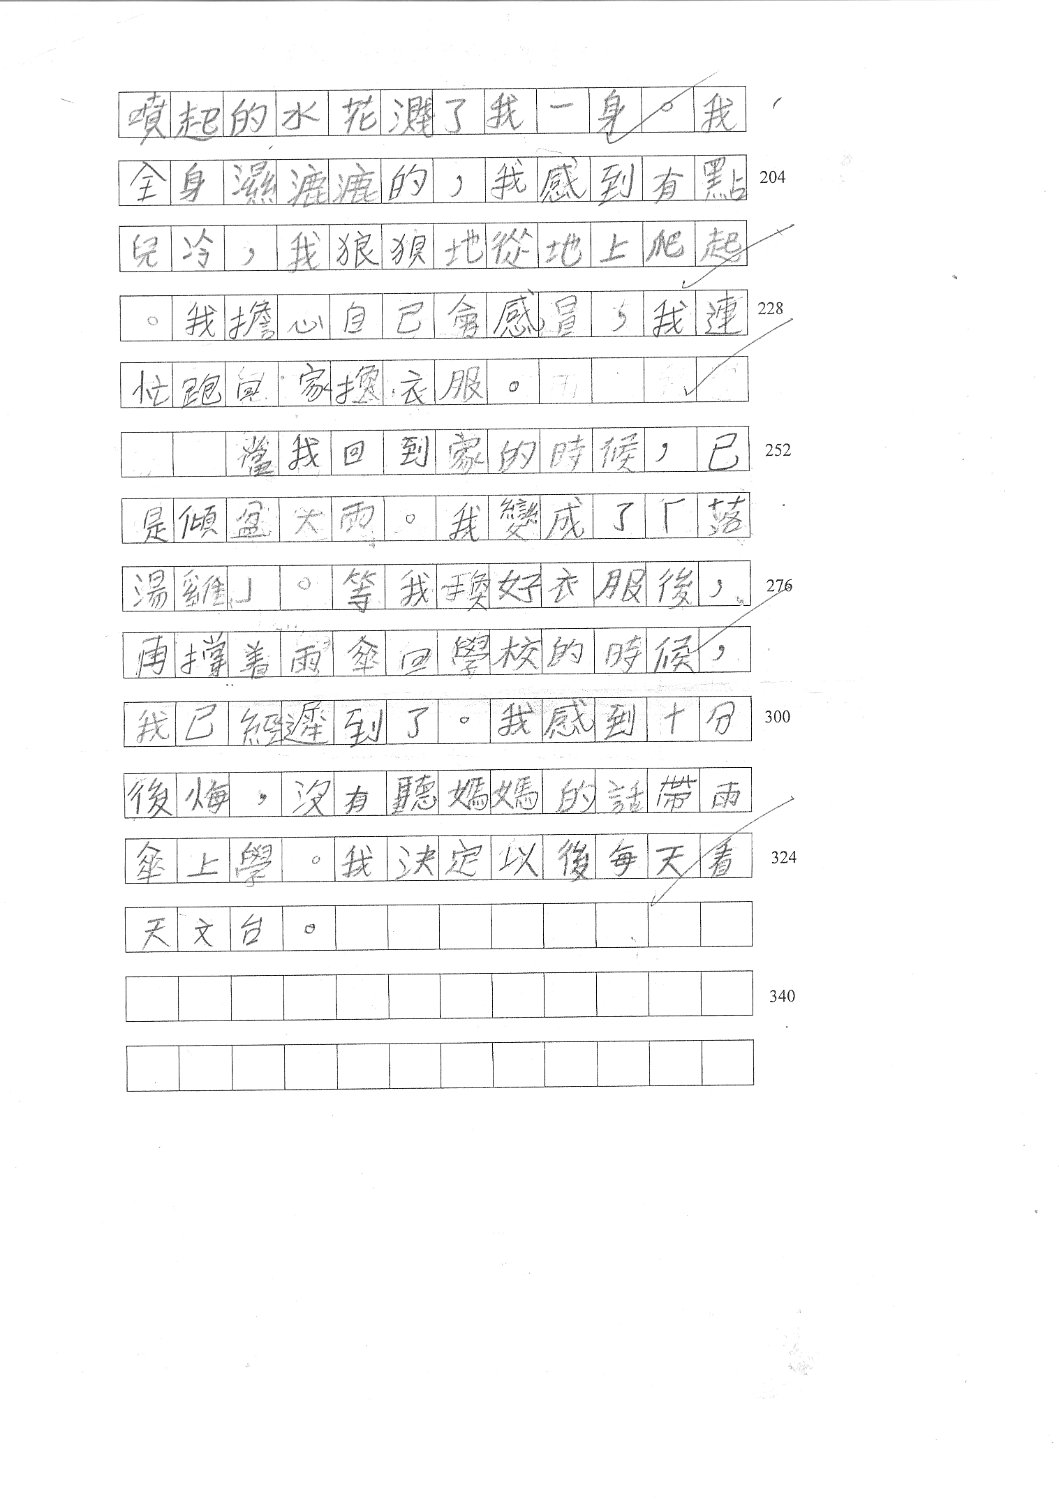 噴起的水花濺了我一身。我
全身濕漉漉的，我感到有點 204
兒冷，我狼狽地從地上爬起
。我擔心自己會感冒，我連 228
忙跑回家換衣服。
當我回到家的時候，已 252
是傾盆大雨。我變成了「落
湯雞」。等我換好衣服後， 276
再撐着雨傘回學校的時候，
我已經遲到了。我感到十分 300
後悔，沒有聽媽媽的話帶雨
傘上學。我決定以後每天看 324
天文台。
340